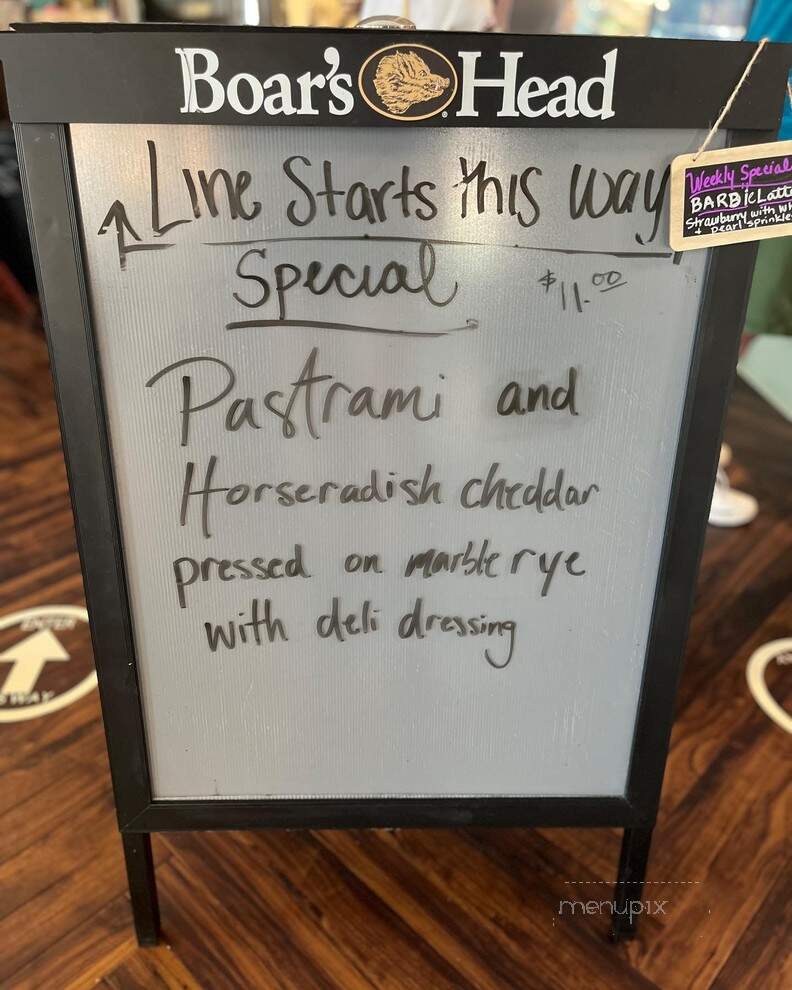 Boar's Head
Line Starts this way
Special $11.00
Pastrami and
Horseradish cheddar
pressed on marble rye
with deli dressing
Weekly Special
BARBIE Latte
Strawberry with
+ pearl sprinkles
ENTER
WAY
menupix